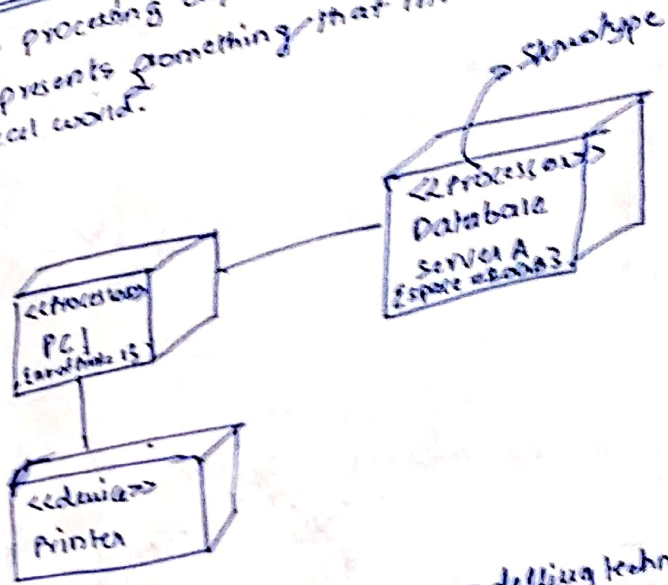 processing
presents something that
world.
Stereotype
<<Processor>>
Database
Server A
<<Processor>>
PC1
<<device>>
Printer
delling techn